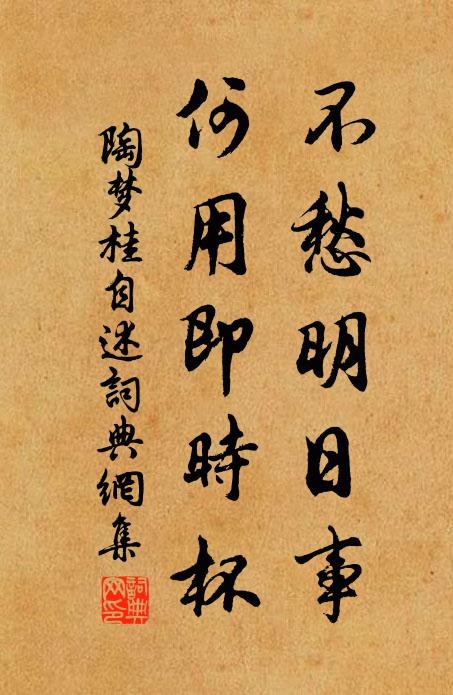 不愁明日事
何用即時杯
陶梦桂自述詞典網集
詞典